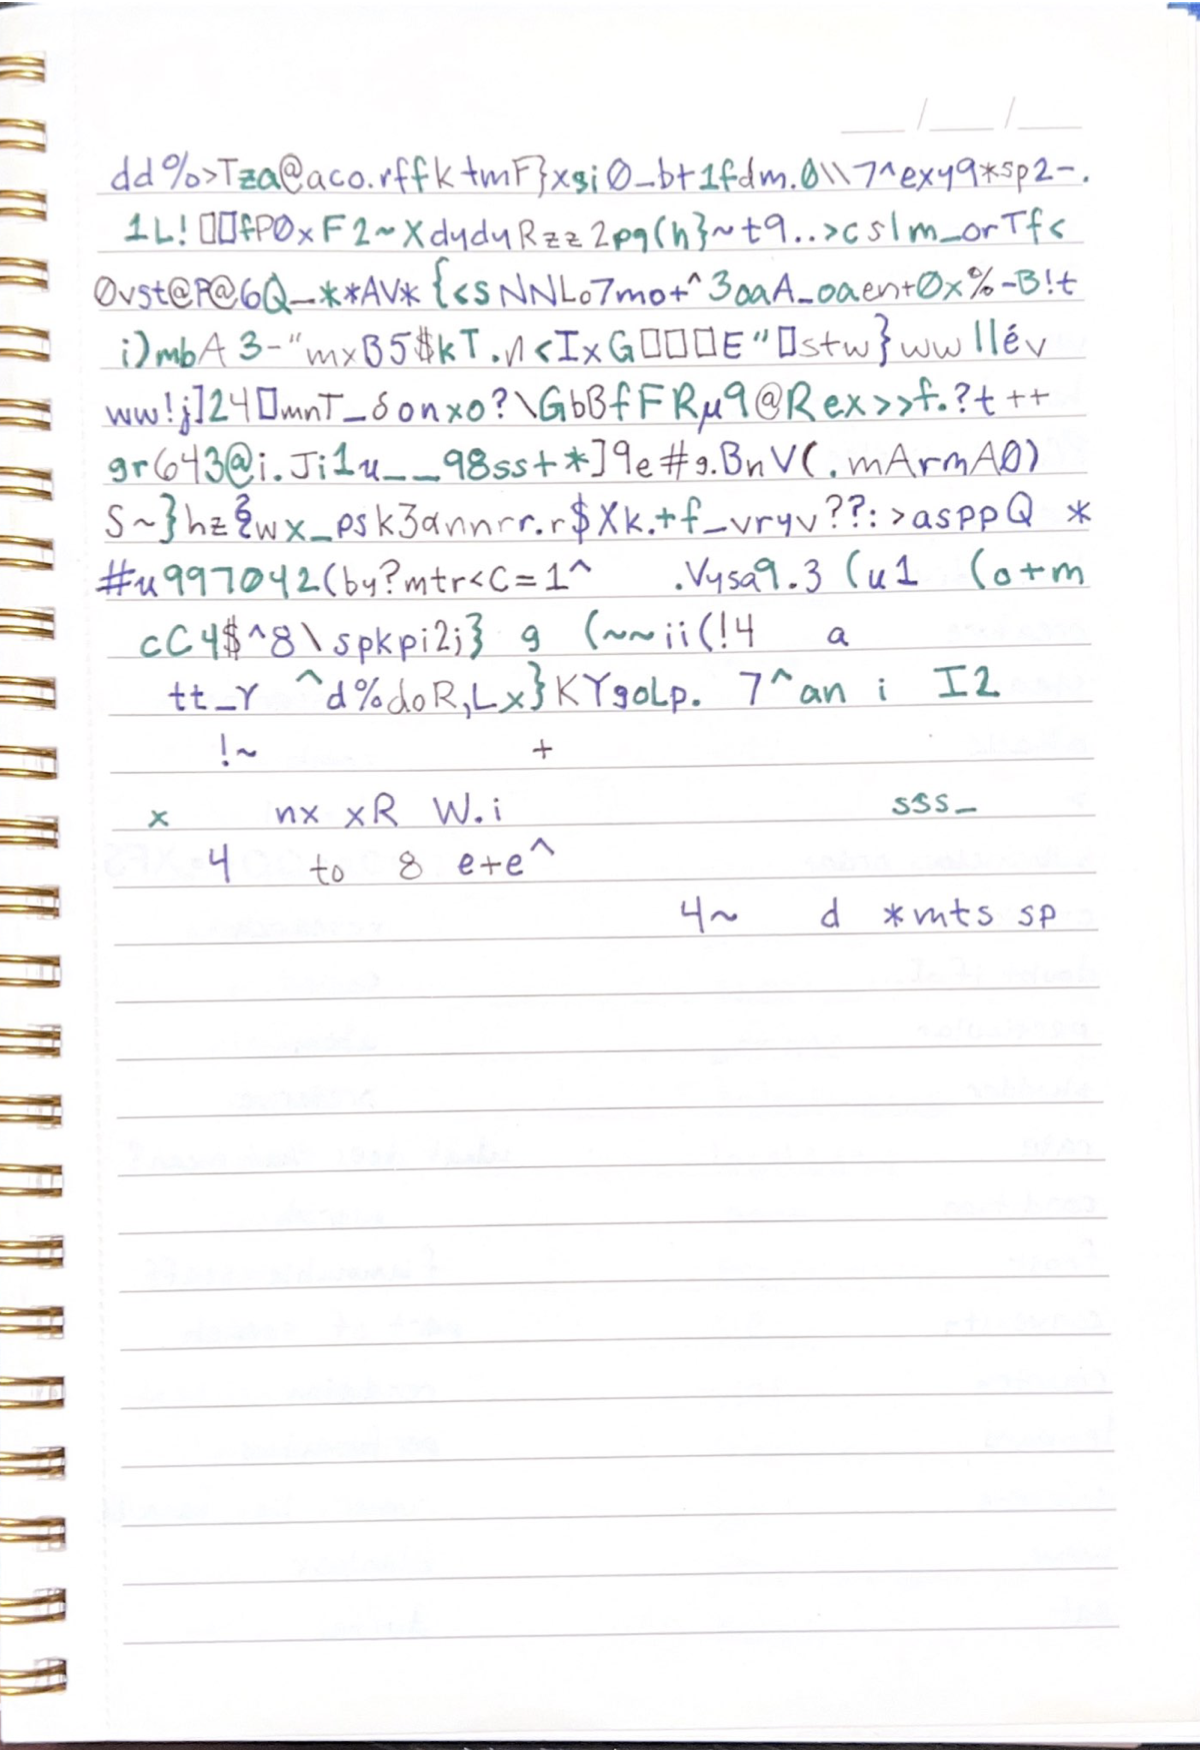 dd%>Tza@aco.rffktmF}xsi0_bt1fdm.0\\7^exy9*sp2-.
1L!▯▯fP0xF2~XdyduRzz2pq(h}~t9..>cslm_orTf<
0vst@P@6Q_**AV*{<sNNLo7mo+^3oaA_oaen+0x%-B!t
i)mbA3-"mxB5$kT.n<IxG▯▯▯E"▯stw}wwllév
ww!j]24▯mnT_δonxo?\GbBfFRμ9@Rex>>f.?t++
gr643@i.Ji1u__98sst*]9e#g.BnV(.mArmA0)
S~}hz{wx_psk3annrr.r$Xk.tf_vryv??:>asppQ *
#u997042(by?mtr<C=1^ .Vysa9.3 (u1 (o+m
cC4$^8\spkpi2j} g (~~ii(!4 a
tt_Y ^d%doR,Lx}KYgoLp. 7^an i I2
!~ +
x nx xR W.i sss_
4 to 8 e+e^
4~ d *mts sp